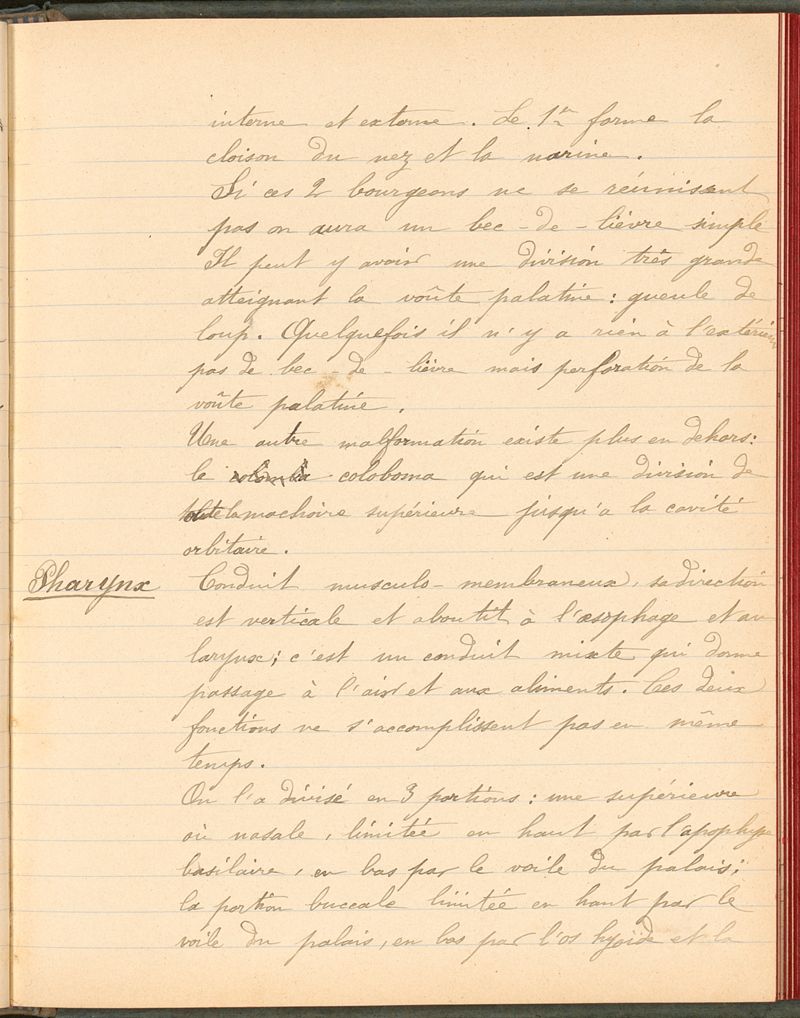 interne et externe. Le 1er forme la
cloison du nez et la narine.
Si ces 2 bourgeons ne se réunissent
pas on aura un bec-de-lièvre simple
Il peut y avoir une division très grande
atteignant la voûte palatine : gueule de
loup. Quelquefois il n'y a rien à l'extérieur
pas de bec-de-lièvre mais perforation de la
voûte palatine.
Une autre malformation existe plus en dehors :
le coloboma qui est une division de
la machoire supérieure jusqu'a la cavité
orbitaire.
Pharynx Conduit musculo-membraneux, sa direction
est verticale et aboutit à l'œsophage et au
larynx ; c'est un conduit mixte qui donne
passage à l'air et aux aliments. Ces deux
fonctions ne s'accomplissent pas en même
temps.
On l'a divisé en 3 portions : une supérieure
où nasale, limitée en haut par l'apophyse
basilaire, en bas par le voile du palais ;
la portion buccale limitée en haut par le
voile du palais, en bas par l'os hyoïde et la